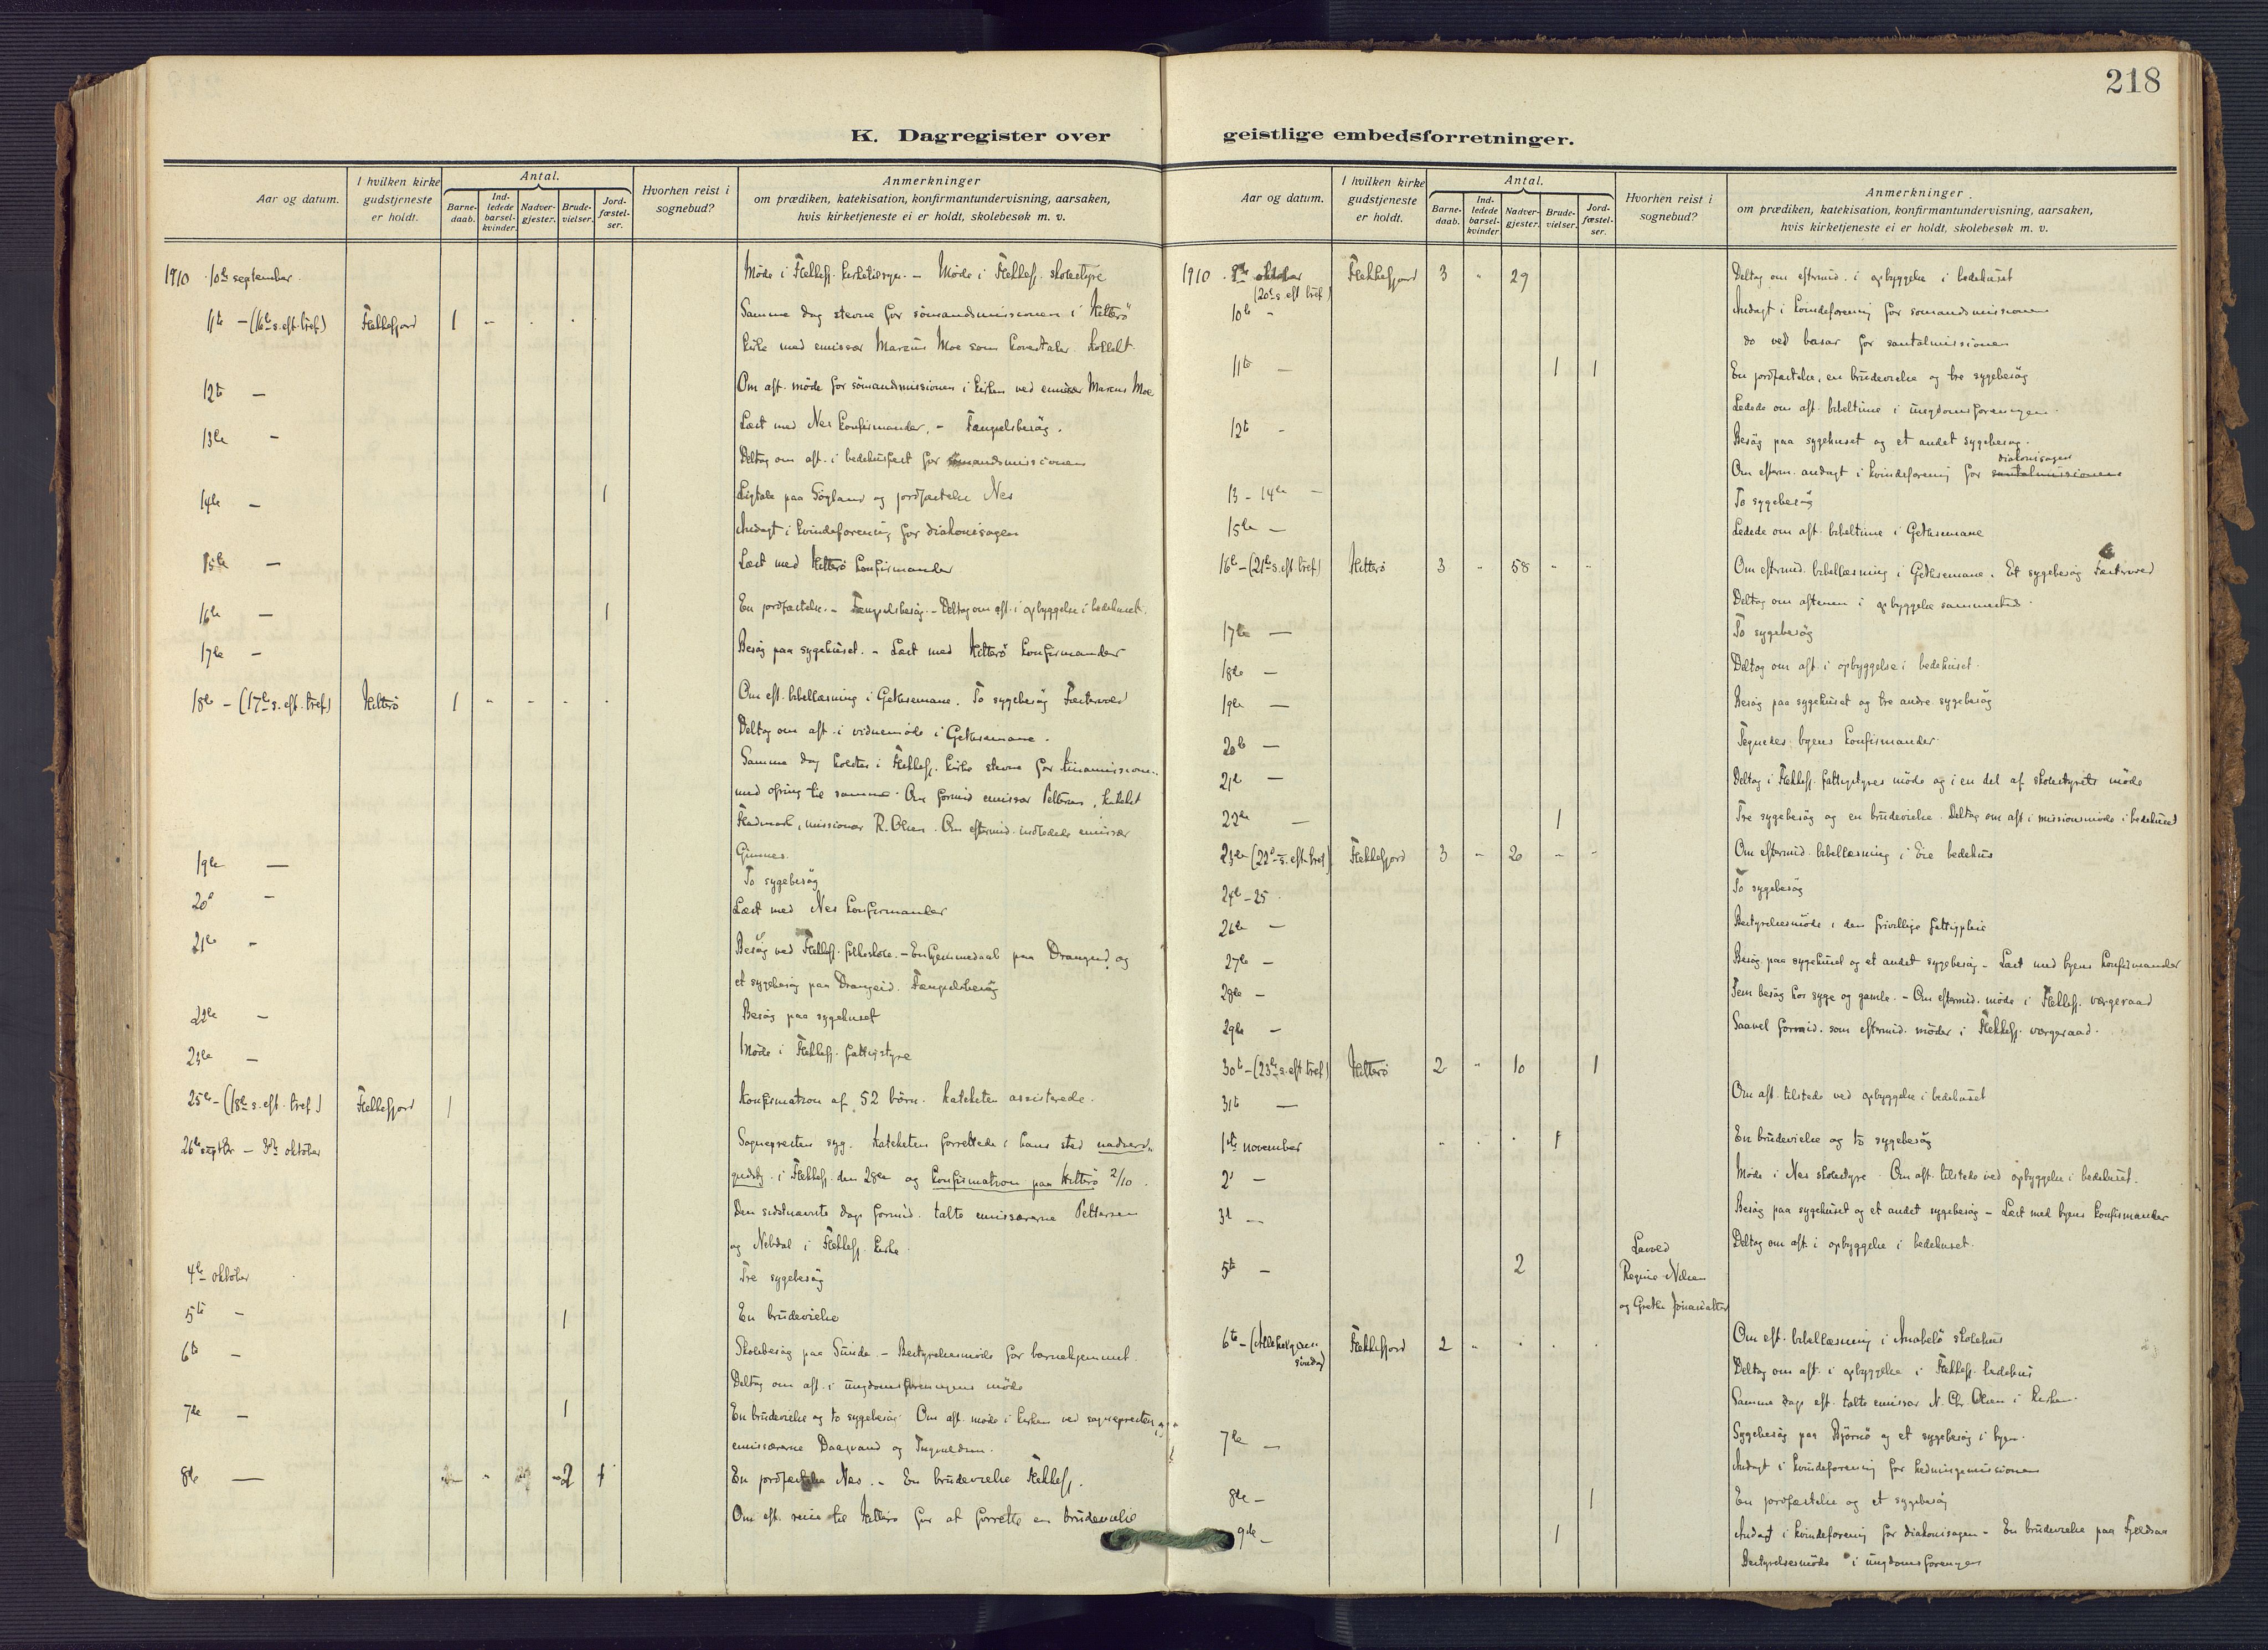 218
K. Dagregister over geistlige embedsforretninger.
Aar og datum.
I hvilken kirke gudstjeneste er holdt.
Antal.
Barne-daab.
Ind-ledede barsel-kvinder.
Nadver-gjester.
Brude-vielser.
Jord-fæstel-ser.
Hvorhen reist i sognebud?
Anmerkninger
om prædiken, katekisation, konfirmantundervisning, aarsaken,
hvis kirketjeneste ei er holdt, skolebesøk m. v.
1910 10de september. Møde i Flekkefj. kirketilsyn. – Møde i Flekkefj. skolestyre
11te – (16de s. eft. tref.) Flekkefjord 1 Samme dag stevne for sømandsmissionen i Hitterø
kirke med emissær Marcus Moe som hovedtaler. Kollekt.
12te – Om aft. møde for sømandsmissionen i kirken ved emissær Marcus Moe
13de – Læst med Nes konfirmander. – Fængselsbesøg.
Deltog om aft. i bedehusfest for sømandsmissionen
14de – 1 Ligtale paa Søgland og jordfæstelse Nes
Andagt i kvindeforening for diakonisagen
15de – Læst med Hitterø konfirmander
16de – 1 En jordfæstelse. – Fængselsbesøg. – Deltog om aft. i opbyggelse i bedehuset.
17de – Besøg paa sygehuset. – Læst med Hitterø konfirmander
18de – (17de s. eft. tref.) Hitterø 1 Om eft. bibellæsning i Getsemane. To sygebesøg
Deltog om aft. i vidnemøde i Getsemane.
Samme dag holdtes i Flekkefj. kirke stevne for kinamissionen
med ofring til samme. Om formid emissær Pettersen, kateket
missionær R. Olsen. Om eftermid. indledede emissær
19de – Gimnes.
To sygebesøg
20de – Læst med Nes konfirmander
21de – Besøg ved Flekkefj. folkeskole. – En hjemmedaab paa Drangeid og
et sygebesøg paa Drangeid. Fængselsbesøg
22de – Besøg paa sygehuset
23de – Møde i Flekkefj. fattigstyre
25de – (18de s. eft. tref.) Flekkefjord 1 Konfirmation af 52 børn. Kateketen assisterede.
26de septbr – 3de oktober Sognepresten syg. Kateketen forrettede i hans sted nadverd-
gudstj. i Flekkefj. den 28de og konfirmation paa Hitterø 2/10.
Den sidstnævnte dags formid. talte emissærerne Pettersen
og Nebdal i Flekkefj. kirke.
4de oktober Tre sygebesøg
5te – 1 En brudevielse
6te – Skolebesøg paa Sunde. – Bestyrelsesmøde for barnehjemmet.
Deltog om aft. i ungdomsforeningens møde
7de – 1 En brudevielse og to sygebesøg. Om aft. møde i kirken ved sognepresten og
emissærerne Daasvand og Ingvaldsen.
8de – 2 1 En jordfæstelse Nes. – En brudevielse Flekkefj.
Om eft. reise til Hitterø for at forrette en brudevielse
1910 9de oktober (20de s. eft. tref.) Flekkefjord 3 29 Deltog om eftermid. i opbyggelse i bedehuset
10de – Andagt i kvindeforening for sømandsmissionen
do ved basar for santalmissionen
11te – 1 1 En jordfæstelse, en brudevielse og tre sygebesøg
Ledede om aft. bibeltime i ungdomsforeningen.
12te – Besøg paa sygehuset og et andet sygebesøg.
Om efterm. andagt i kvindeforening for santalmissionen diakonisagen
13 – 14de – To sygebesøg
15de – Ledede om aft. bibeltime i Getsemane
16de – (21de s. eft. tref.) Hitterø 3 58 Om eftermid. bibellæsning i Getsemane. Et sygebesøg
Deltog om aftenen i opbyggelse sammesteds.
17de – To sygebesøg
18de – Deltog om aft. i opbyggelse i bedehuset.
19de – Besøg paa sygehuset og tre andre sygebesøg
20de – Tegnedes byens konfirmander.
21de – Deltog i Flekkefj. fattigstyres møde og i en del af skolestyrets møde
22de – 1 Tre sygebesøg og en brudevielse. Deltog om aft. i missionsmøde i bedehuset
23de (22de s. eft. tref.) Flekkefjord 3 20 Om eftermid. bibellæsning i Eie bedehus
24de – 25 To sygebesøg
26de – Bestyrelsesmøde i den frivillige fattigpleie
27de – Besøg paa sygehuset og et andet sygebesøg – Læst med byens konfirmander
28de – Fem besøg hos syge og gamle. – Om eftermid. møde i Flekkefj. vergeraad
29de – Saavel formid. som eftermid. møder i Flekkefj. vergeraad.
30te – (23de s. eft. tref.) Hitterø 2 10 1
31te – Om aft. tilstede ved opbyggelse i bedehuset
1ste november 1 En brudevielse og to sygebesøg
2 – Møde i Nes skolestyre. Om aft. tilstede ved opbyggelse i bedehuset.
3de – Besøg paa sygehuset og et andet sygebesøg – Læst med byens konfirmander
Deltog om aft. i opbyggelse i bedehuset.
5te – 2 Regine Nilsen
og Grethe
6te – (Allehelgens-søndag) Flekkefjord 2 Om eft. bibellæsning i Anabelø skolehus
Deltog om aft. i opbyggelse i Flekkefj. bedehus
Samme dags eft. talte emissær N. Chr. Olsen i kirken.
7de – Sygebesøg paa Bjørnø og et sygebesøg i byen.
Andagt i kvindeforening for hedningemissionen
8de – 1 En jordfæstelse og et sygebesøg
9de – 1 Andagt i kvindeforening for diakonisagen – En brudevielse paa Fjeldsaa
Bestyrelsesmøde i ungdomsforeningen